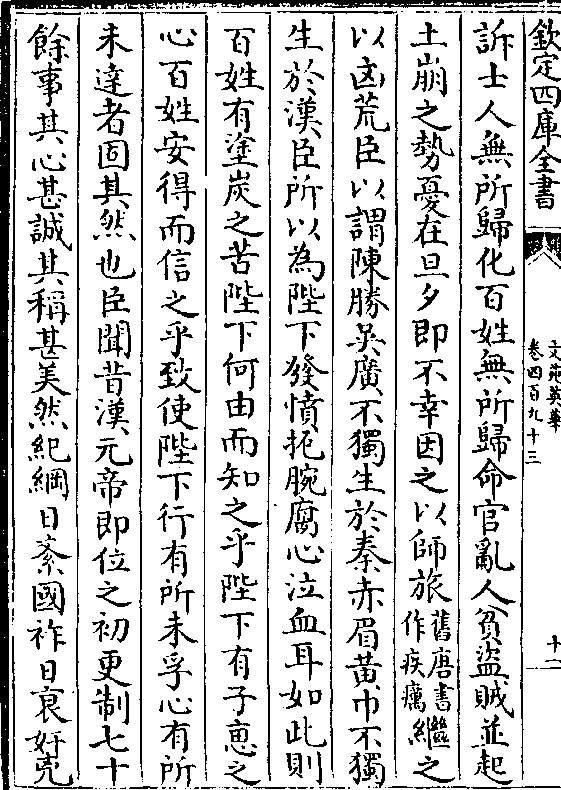 欽定四庫全書
文苑英華
卷四百九十三
十二
訴士人無所歸化百姓無所歸命官亂人貧盜賊並起
土崩之勢憂在旦夕即不幸因之以師旅舊唐書作疾癘繼之
以凶荒臣以謂陳勝吳廣不獨生於秦赤眉黃巾不獨
生於漢臣所以為陛下發憤扼腕腐心泣血耳如此則
百姓有塗炭之苦陛下何由而知之乎陛下有子恵之
心百姓安得而信之乎致使陛下行有所未孚心有所
未達者固其然也臣聞昔漢元帝即位之初更制七十
餘事其心甚誠其稱甚美然紀綱日紊國祚日衰奸兇